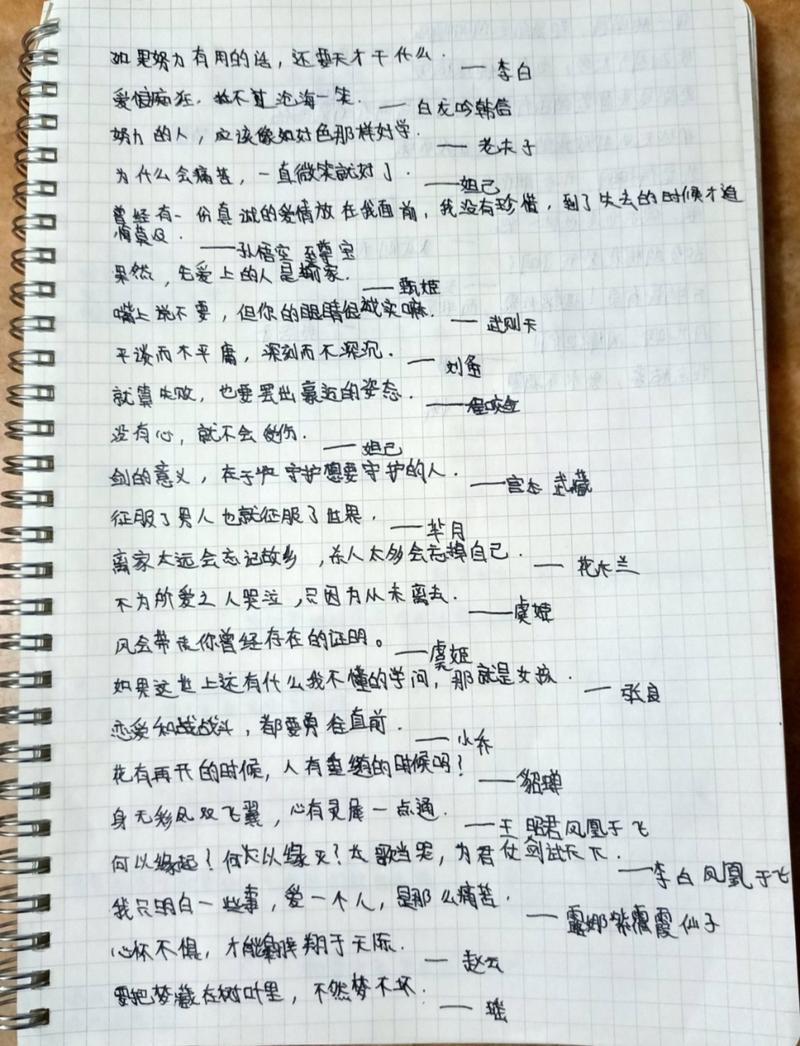 如果努力有用的话，还要天才干什么. —李白
爱恨痴狂，敌不过沧海一笑. —白龙吟韩信
努力的人，应该像好色那样好学. —老夫子
为什么会痛苦，一直微笑就好了. —妲己
曾经有一份真诚的爱情放在我面前，我没有珍惜，到了失去的时候才追
悔莫及. —孙悟空 至尊宝
果然，先爱上的人是输家. —甄姬
嘴上说不要，但你的眼睛很诚实嘛. —武则天
平淡而不平庸，深刻而不深沉. —刘备
就算失败，也要摆出豪迈的姿态. —程咬金
没有心，就不会受伤. —妲己
剑的意义，在于守护想要守护的人. —宫本 武藏
征服了男人也就征服了世界. —芈月
离家太远会忘记故乡，杀人太多会忘掉自己. —花木兰
不为所爱之人哭泣，只因为从未离去. —虞姬
风会带走你曾经存在的证明。—虞姬
如果这世上还有什么我不懂的学问，那就是女孩. —张良
恋爱和战战斗，都要勇往直前. —小乔
花有再开的时候，人有重逢的时候吗? —貂蝉
身无彩凤双飞翼，心有灵犀一点通. —王昭君凤凰于飞
何以缘起?何以缘灭?长歌当哭，为君仗剑试天下. —李白凤凰于飞
我只明白一些事，爱一个人，是那么痛苦. —露娜紫霞仙子
心怀不惧，才能翱翔于天际. —赵云
要把梦藏在树叶里，不然梦不坏. —瑶